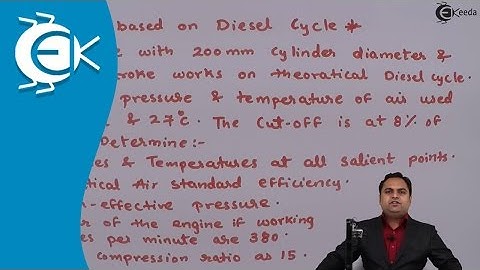 based on Diesel Cycle *
with 200 mm cylinder diameter &
stroke works on theoratical Diesel cycle.
pressure & temperature of air used
& 27°c. The Cut-off is at 8% of
Determine :-
& Temperatures at all salient points.
Air standard efficiency.
effective pressure.
of the engine if working
per minute are 380.
compression ratio as 15.
EK
Ekeeda